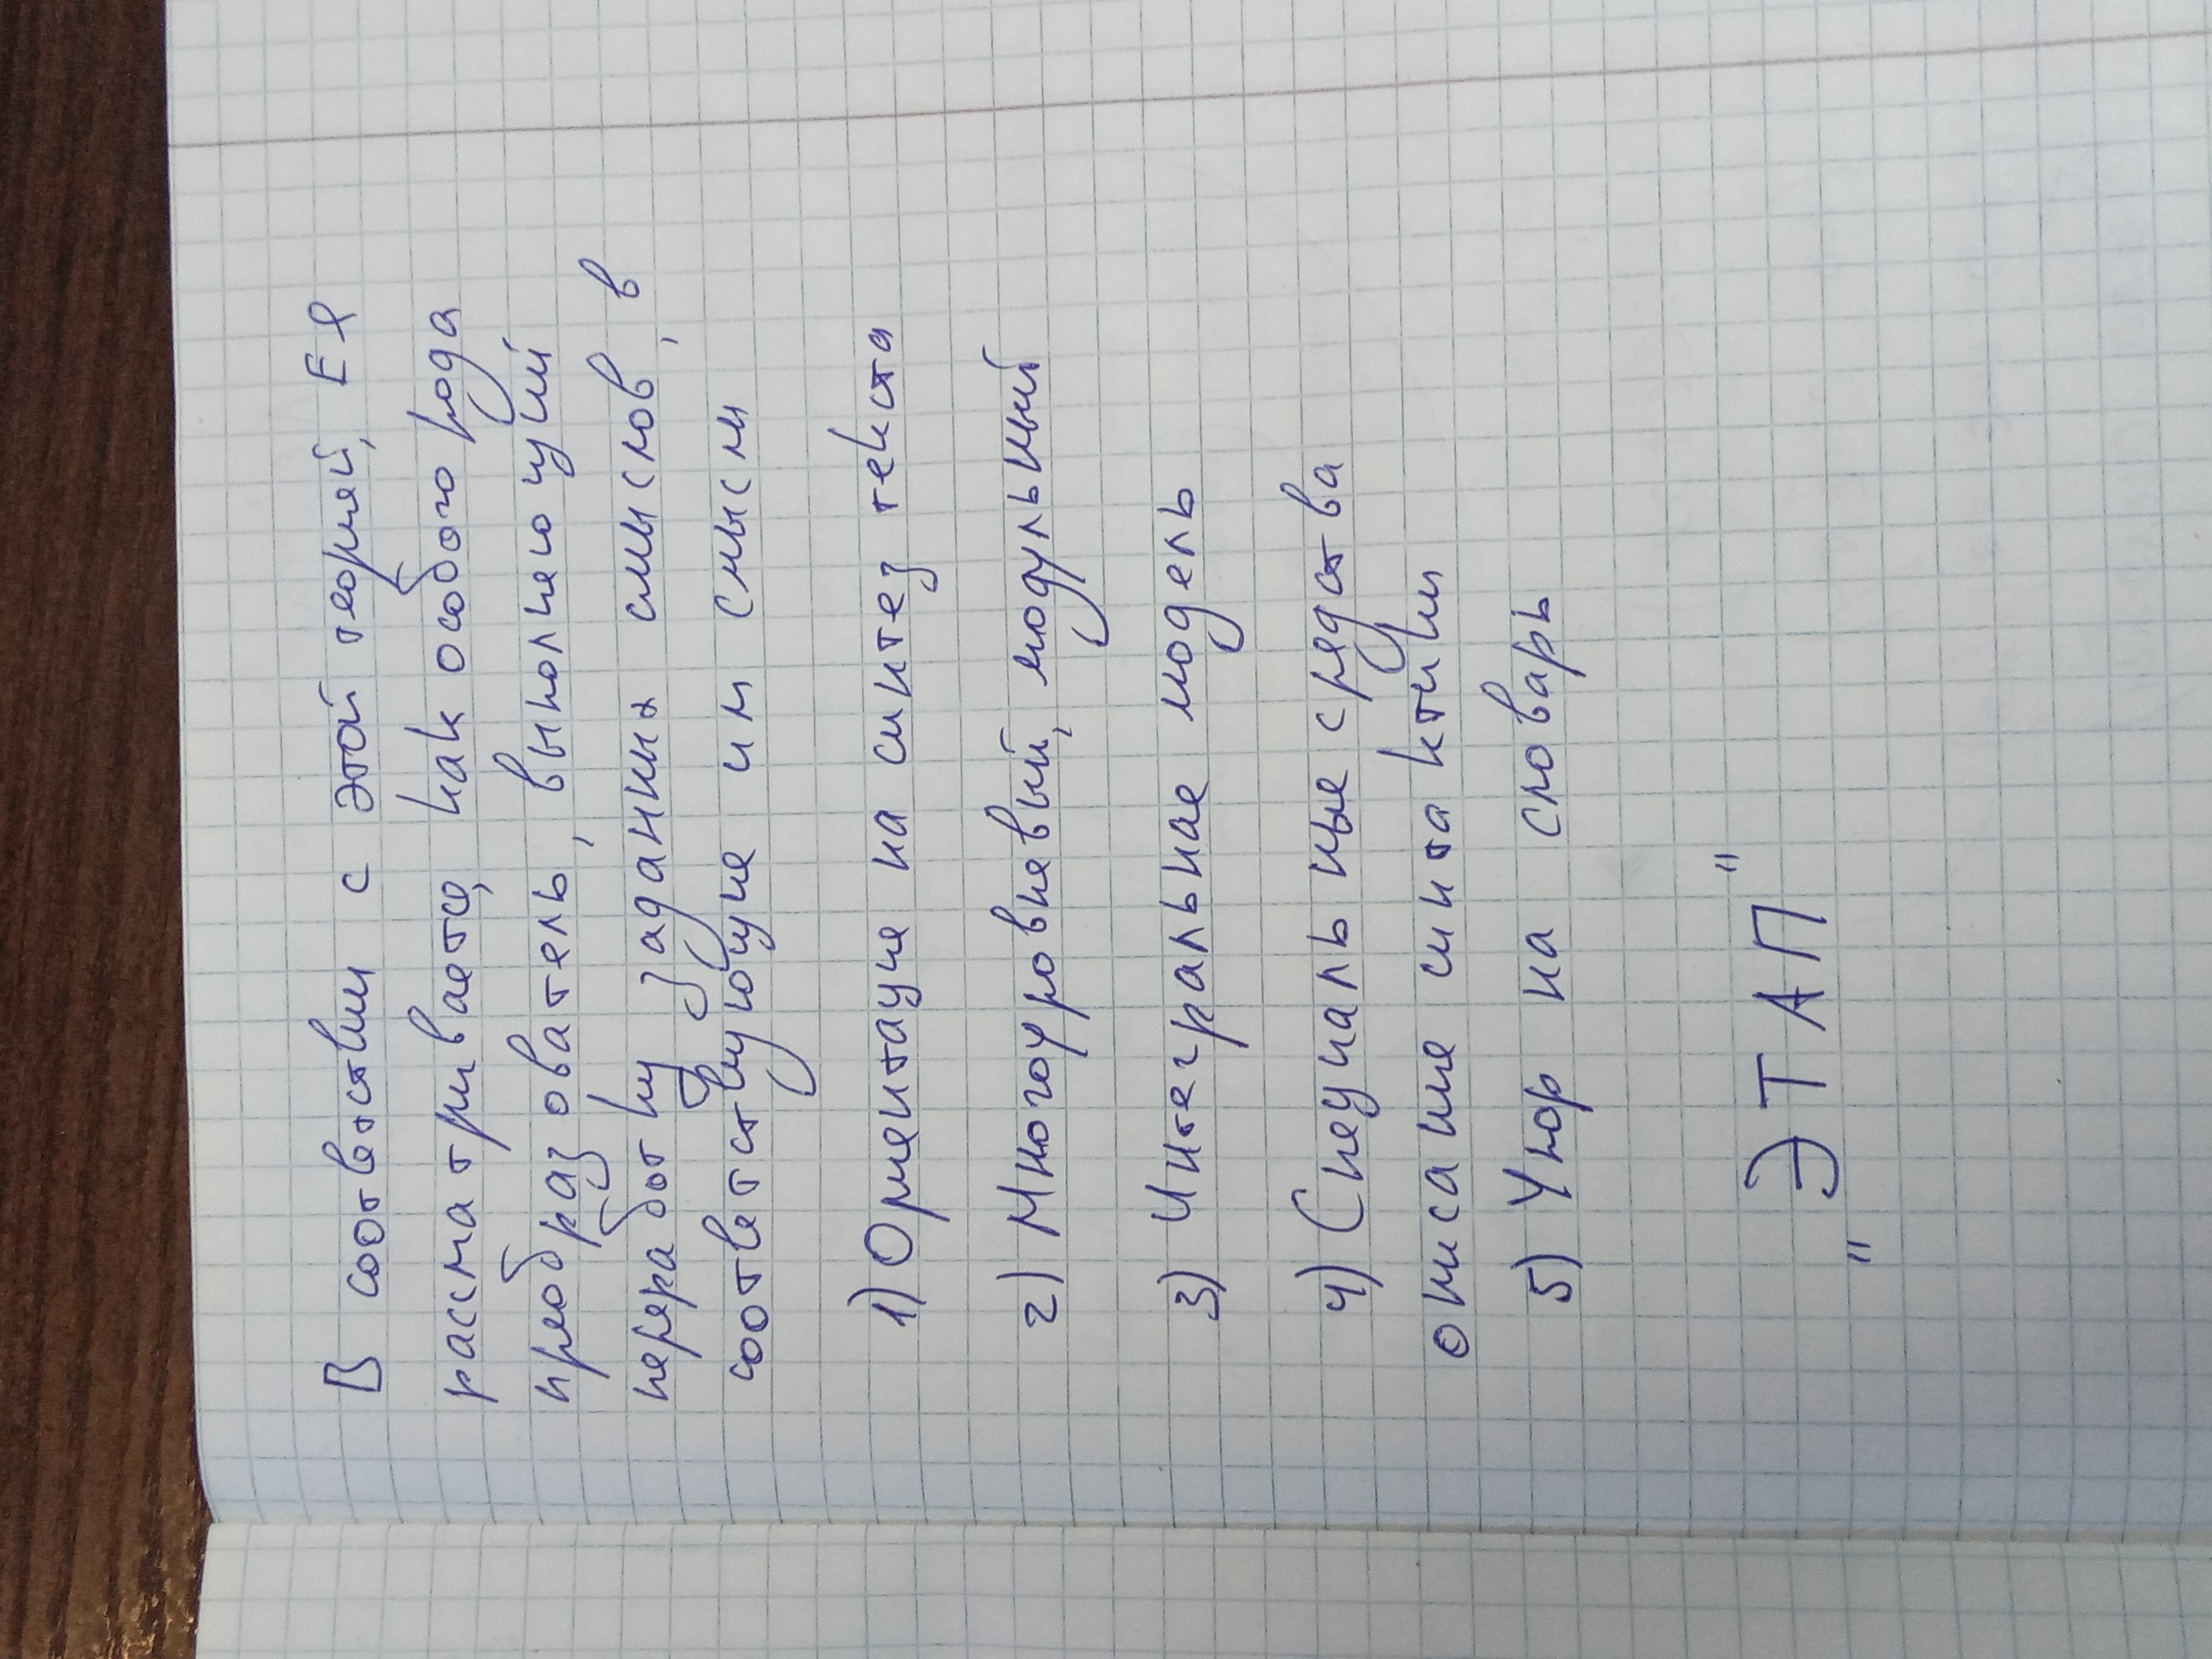 В соответствии с этой теорией, ЕЯ
рассматривается, как особого рода
преобразователь, выполняющий
переработку заданных смыслов, в
соответствующие им смыслы
1) Ориентация на синтез текста
2) Многоуровневый, модульный
3) Интегральная модель
4) Специальные средства
описание синтактики
5) Упор на словарь
„ЭТАП"